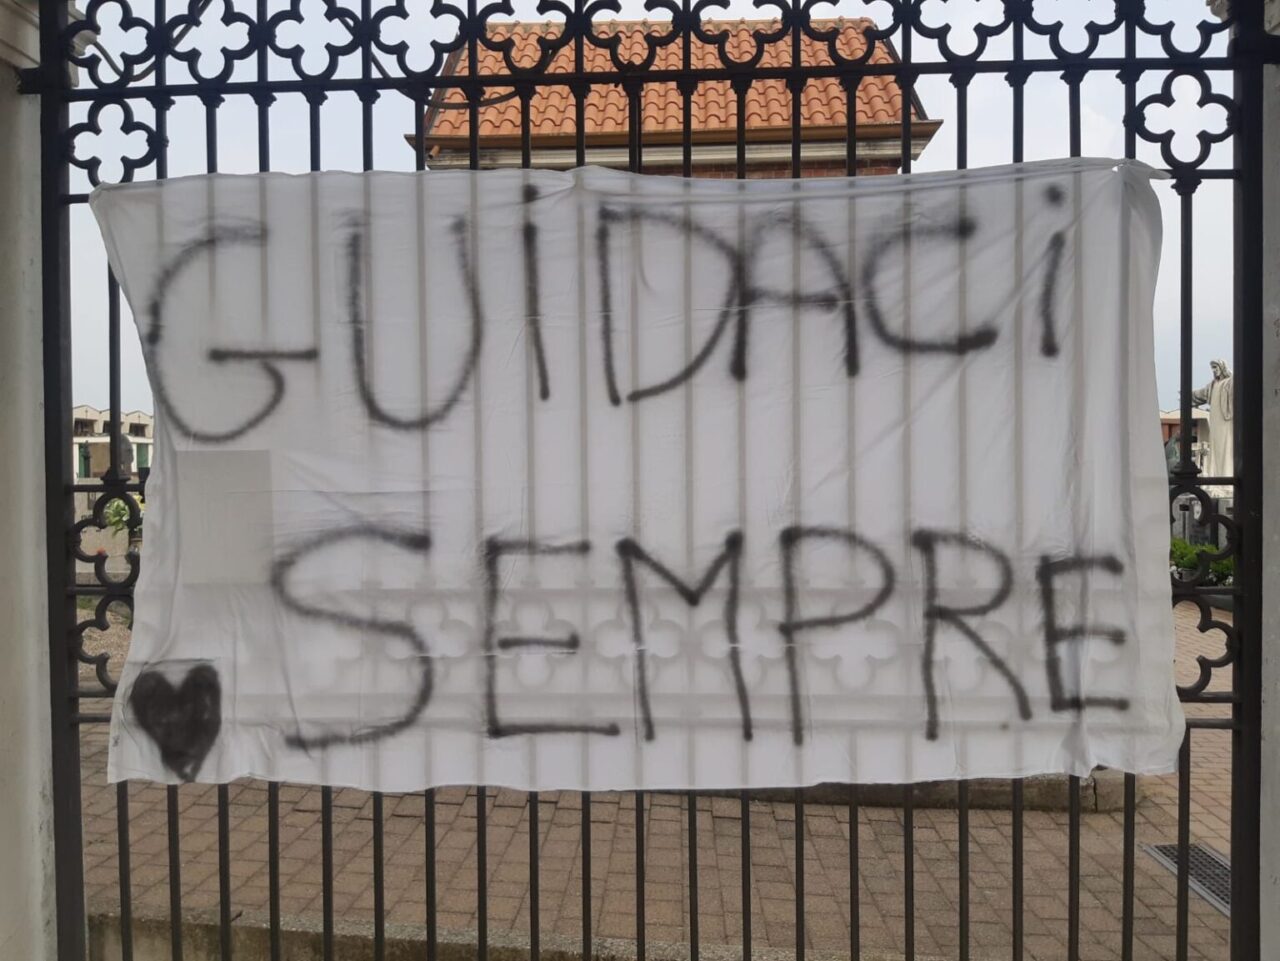 GUiDACi
SEMPRE